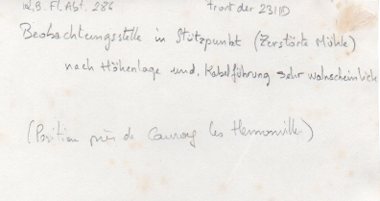 Fl. Abt. 286 front der 23 ID
Beobachtungsstelle in Stützpunkt (Zerstörte Mühle)
nach Höhenlage und Kabelführung sehr wahrscheinlich
(Position près de Cauroy les Hermonville)